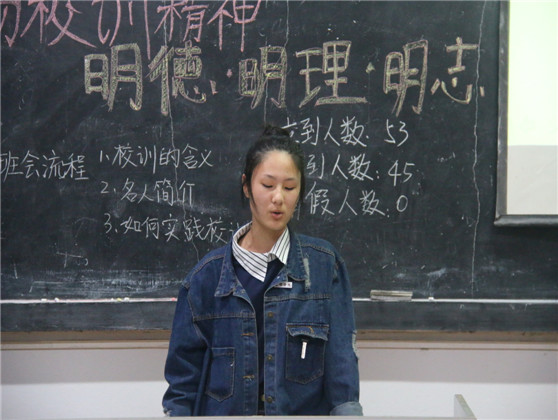 校训精神
明德·明理·明志
班会流程
1.校训的含义
2.名人简介
3.如何实践校
到人数: 53
到人数: 45
假人数: 0